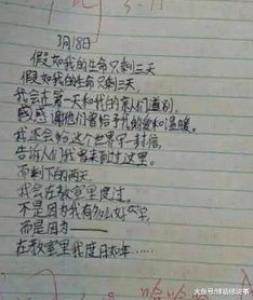 3月18日
假如我的生命只剩三天
假如我的生命只剩三天,
我会在第一天和我的家人们道别,
感谢他们曾给予我的爱和温暖。
我还会给这个世界写一封信,
告诉人们我曾来到过这里。
而剩下的两天,
我会在教室里度过。
不是因为我有多么好学,
而是因为——
在教室里我度日如年……